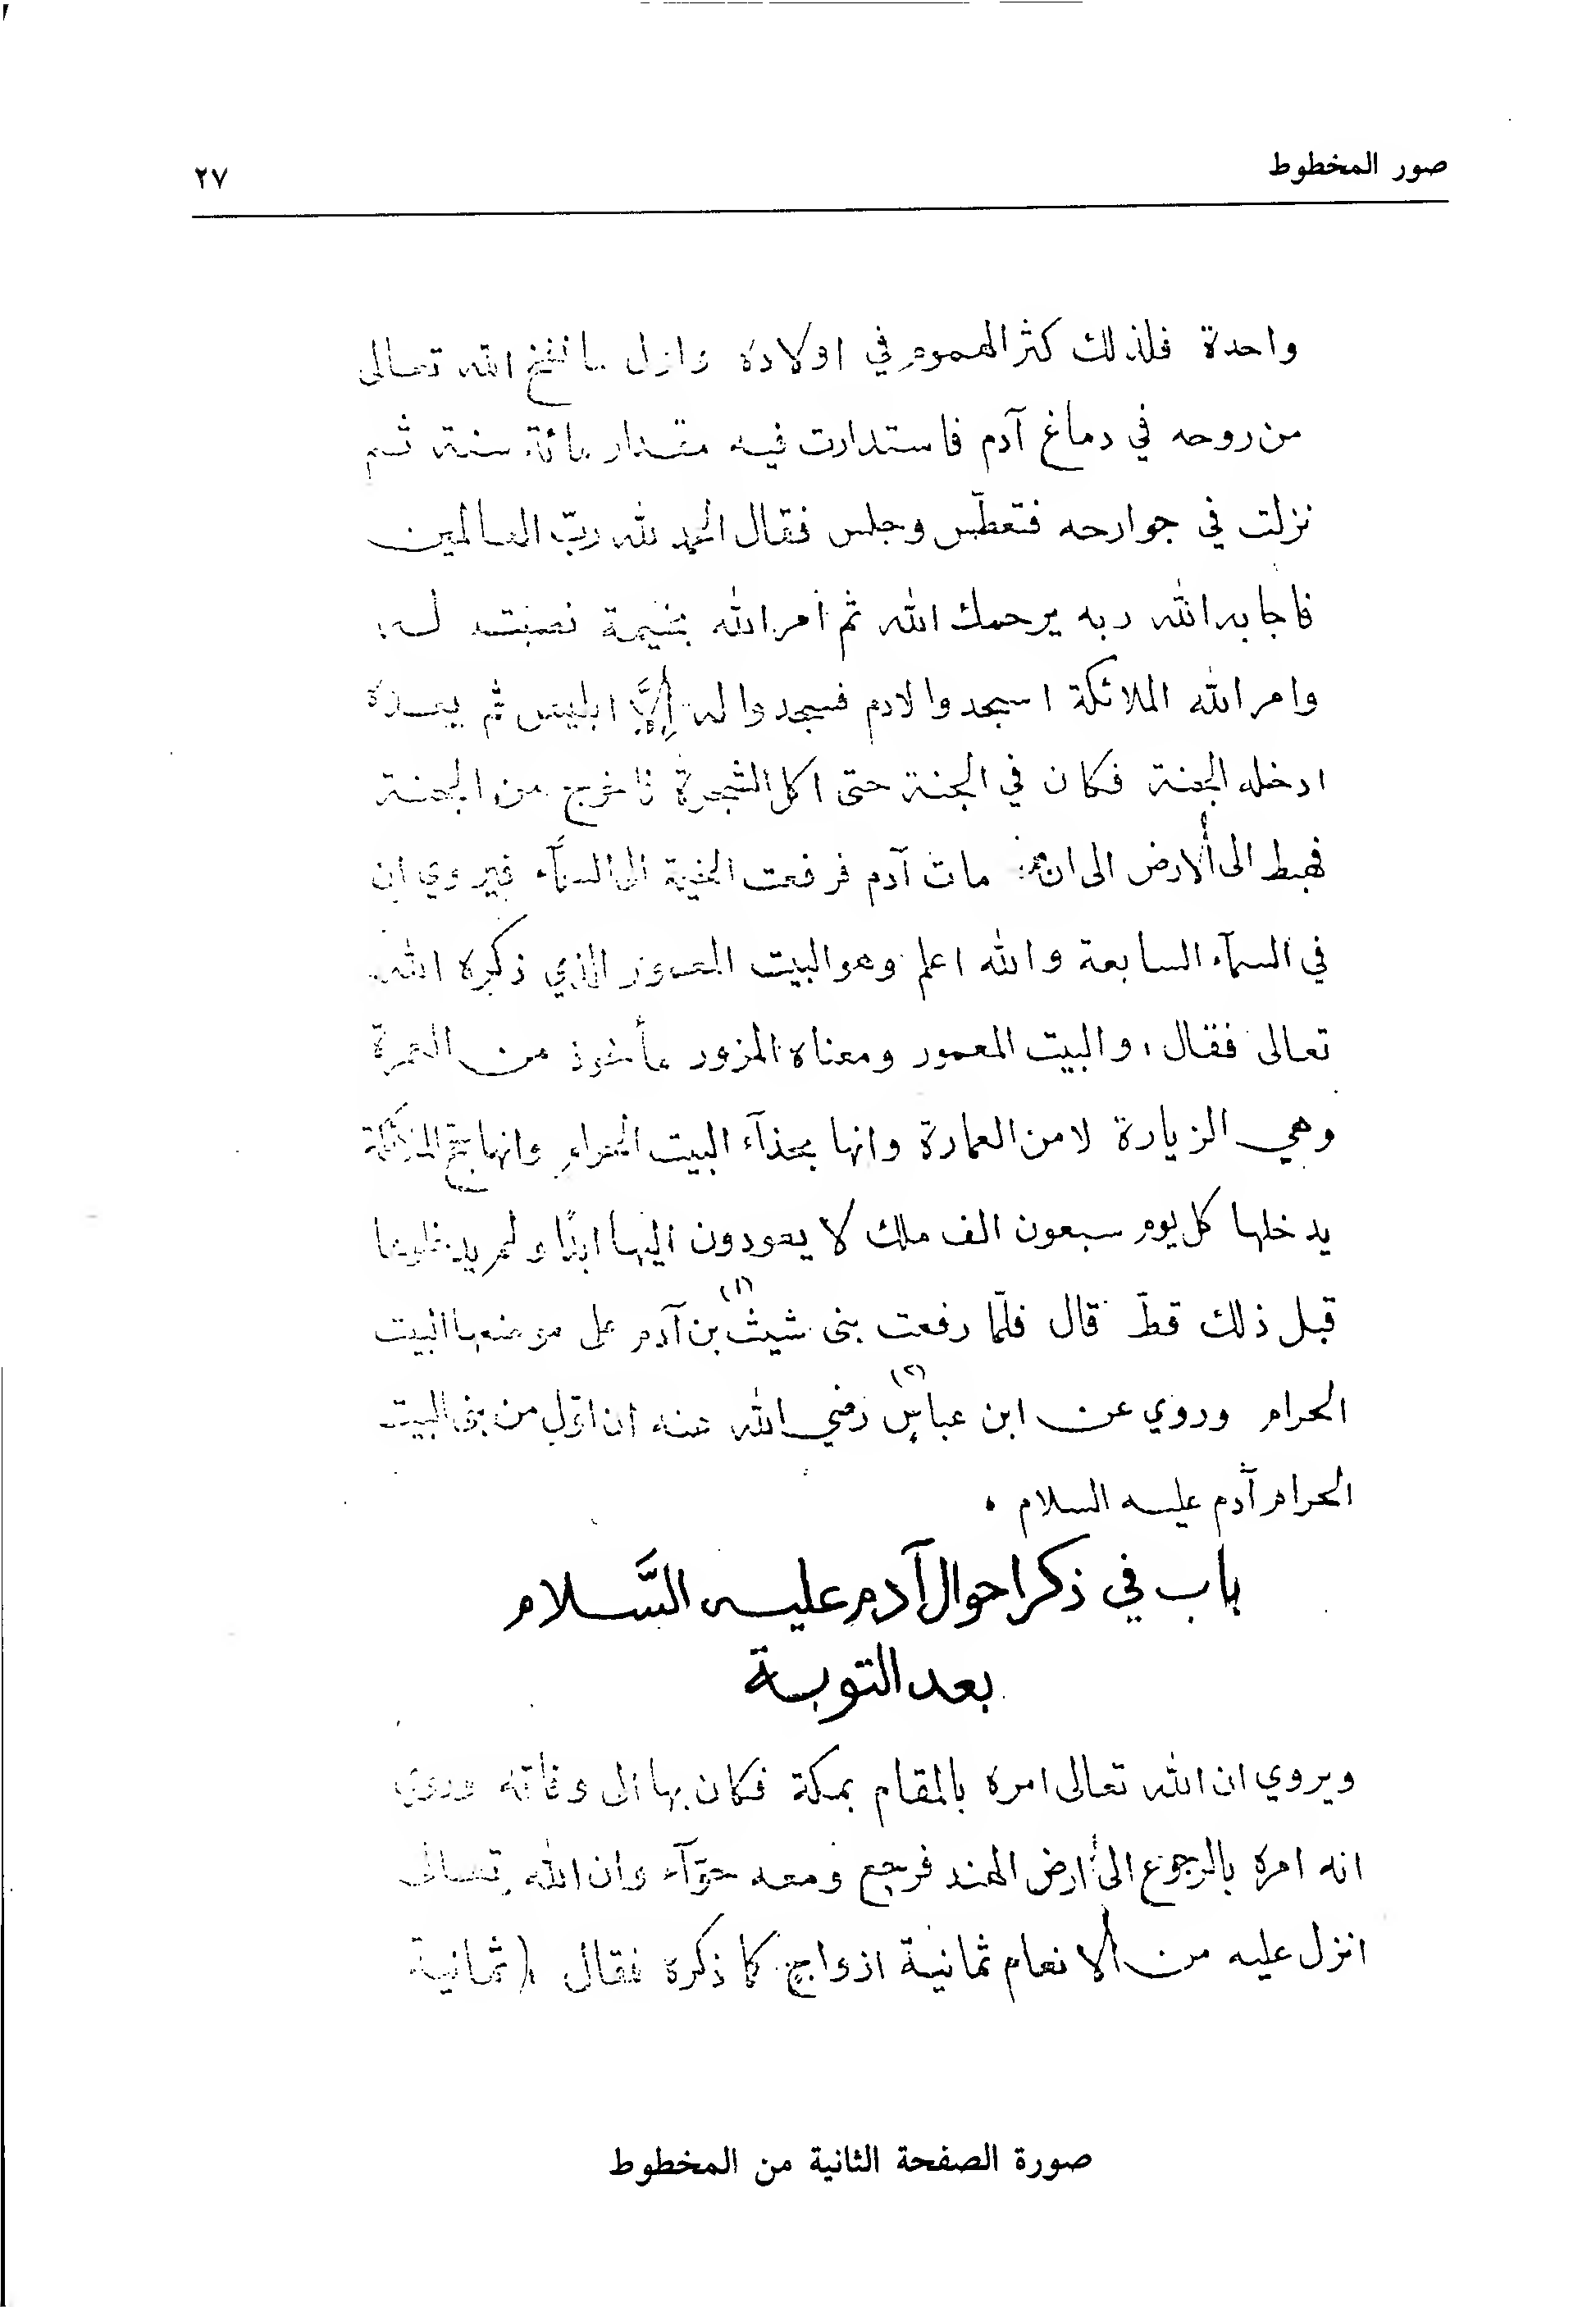 صور المخطوط
٢٧
واحدة فلذلك كثر الهموم في اولاده واول ما نفخ الله تعالى
من روحه في دماغ آدم فاستدارت فيه مقدار مائة سنة ثم
نزلت في جوارحه فتعطّس وجلس فقال الحمد لله ربّ العالمين
فاجابه الله ربه يرحمك الله ثم أمر الله بخيمة نصبت له
وامر الله الملائكة اسجدوا لادم فسجدوا له إلاَّ ابليس ثم بعده
ادخله الجنة فكان في الجنة حتى اكل الشجرة فاخرج من الجنة
فهبط الى ألارض الى ان مات آدم فرفعت الخيمة الى السمآء فيروي ان
في السمآء السابعة والله اعلم وهو البيت المعمور الذي ذكره الله
تعالى فقال، والبيت المعمور ومعناه المزور مأخوذ من العمرة
وهي الزيارة لا من العمارة وانها بحذآء البيت الحرام وانها الملائكة
يدخلها كل يوم سبعون الف ملك لا يعودون اليها ابدًا ولم يدخلوها
قبل ذلك قطّ قال فلمّا رفعت بنى شيث (١) بن آدم على موضعها البيت
الحرام وروي عن ابن عباس (٢) رضي الله عنه ان اوّل من بنى البيت
الحرام آدم عليه السلام .
باب في ذكر احوال آدم عليه السَّلام
بعد التوبة
ويروي ان الله تعالى امره بالمقام بمكة فكان بها الى وفاته وروي
انه امره بالرجوع الى أرض الهند فرجع ومعه حوّآء وان الله تعالى
انزل عليه من ألانعام ثمانية ازواج كما ذكره فقال (ثمانية
صورة الصفحة الثانية من المخطوط